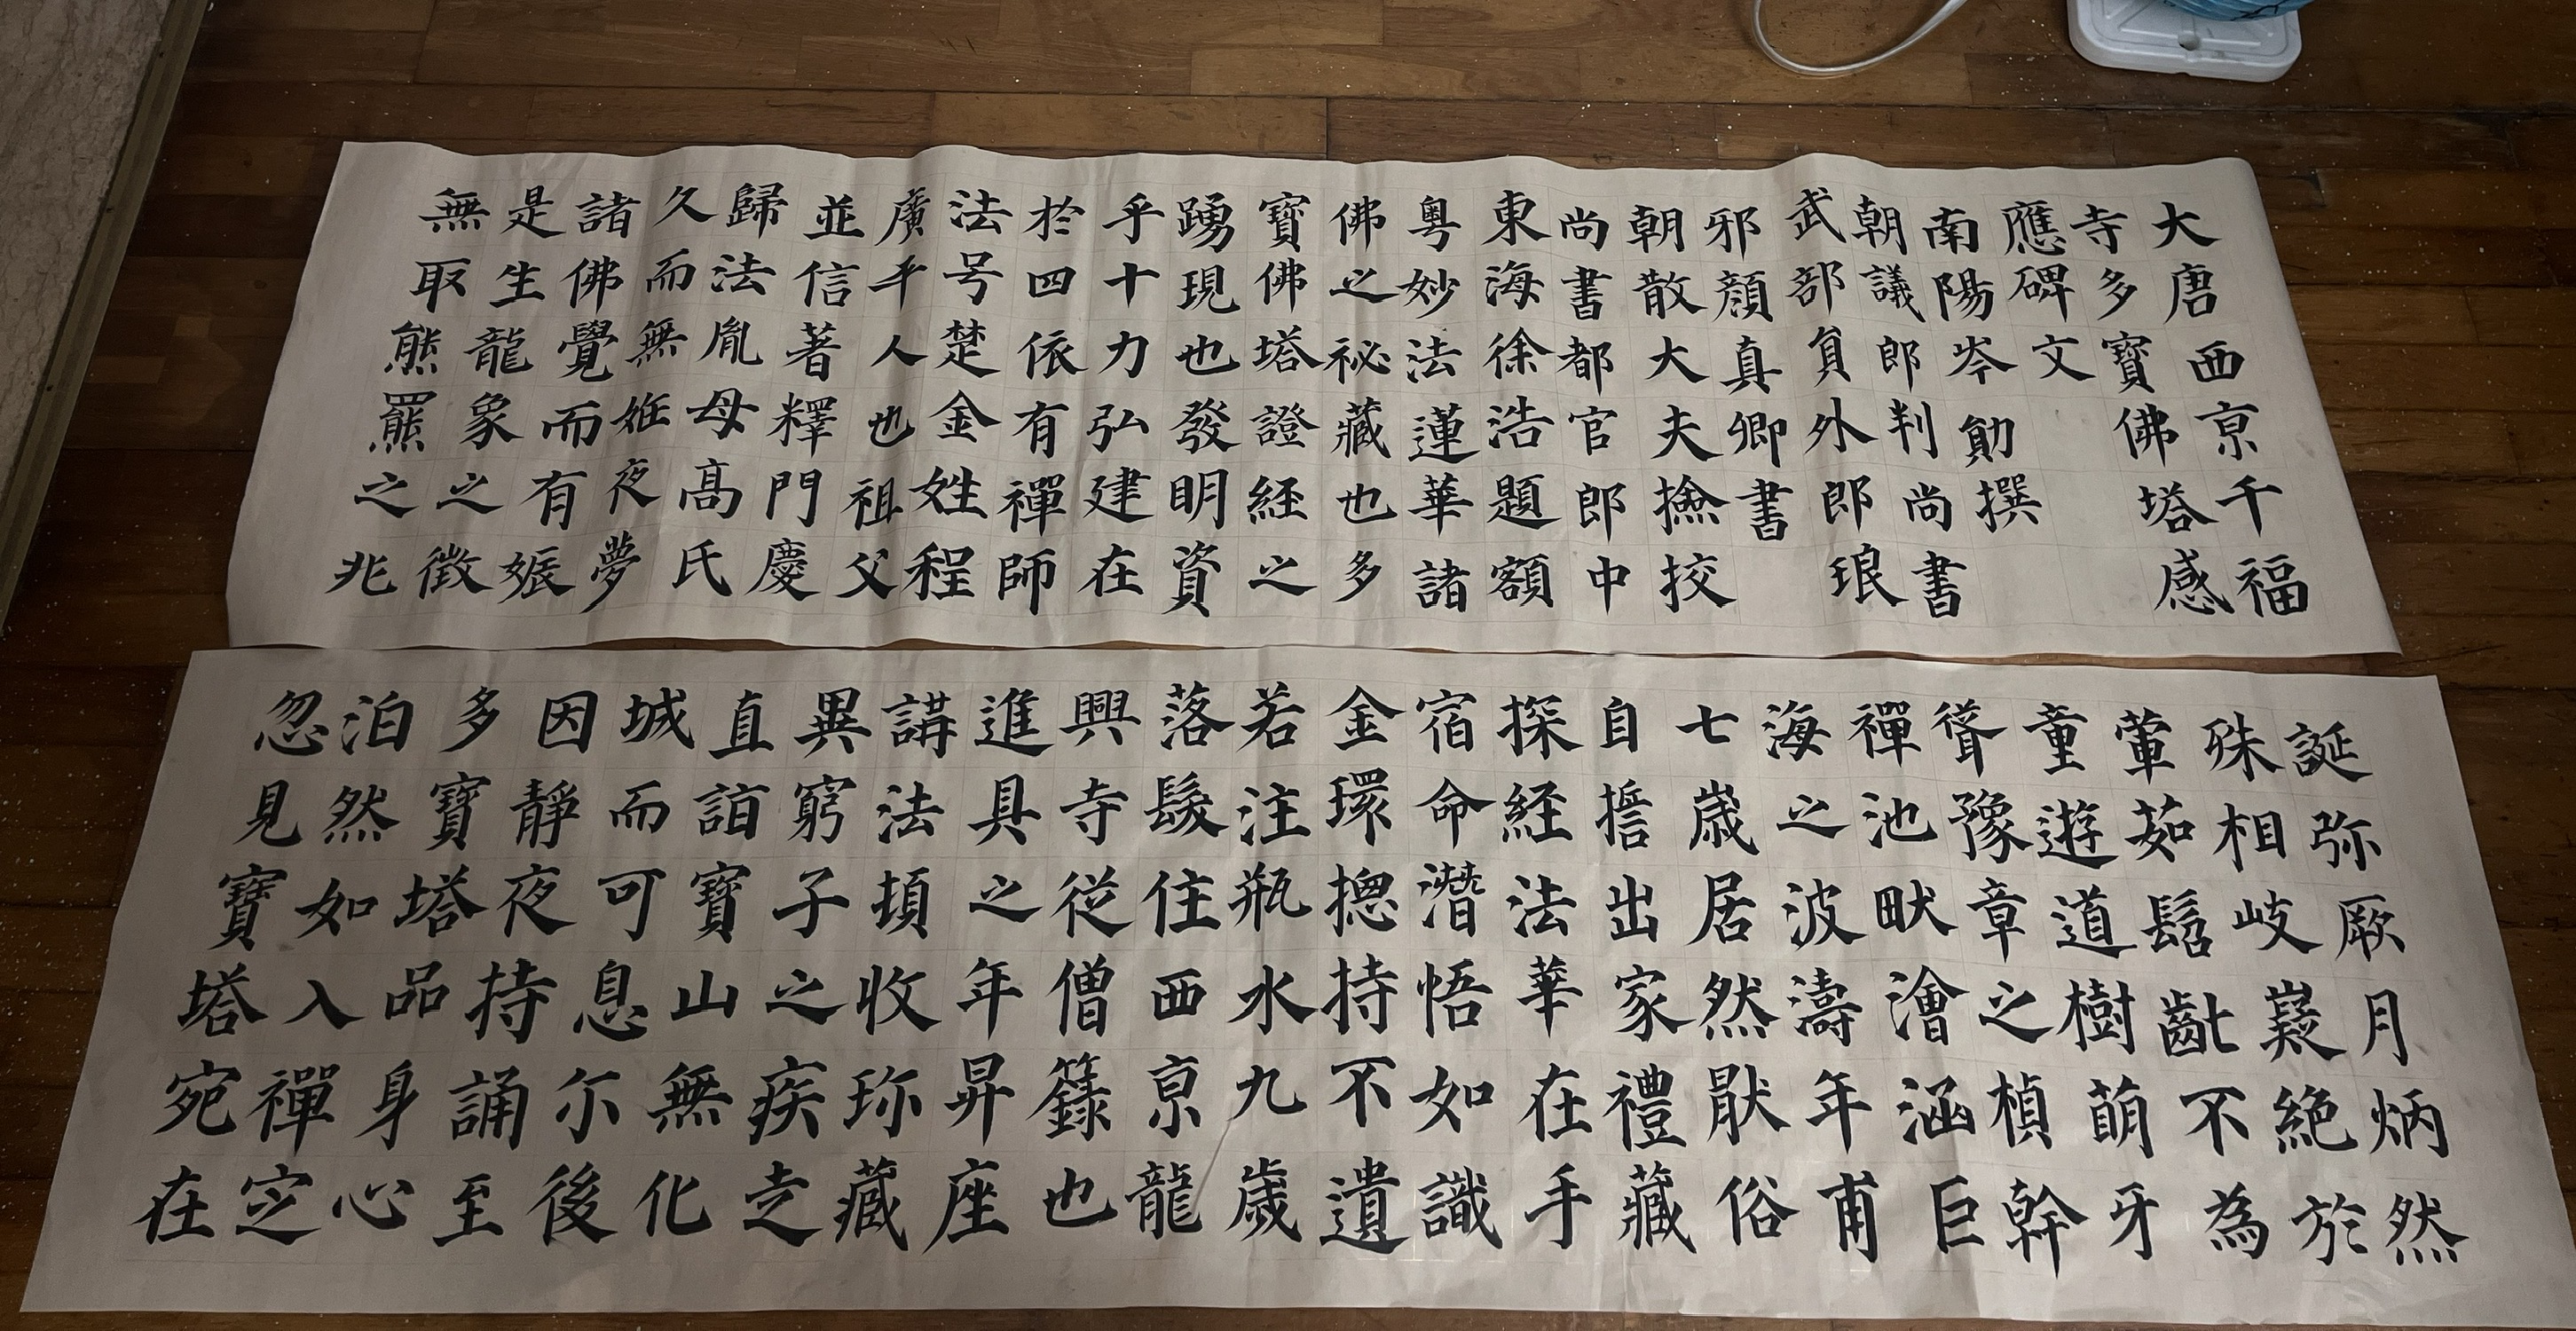 大唐西亰千福
寺多寶佛塔感
應碑文
南陽岑勛撰
朝議郎判尚書
武部員外郎琅
邪顏真卿書
朝散大夫撿挍
尚書都官郎中
東海徐浩題額
粵妙法蓮華諸
佛之祕藏也多
寶佛塔證経之
踴現也發明資
乎十力弘建在
於四依有禪師
法号楚金姓程
廣平人也祖父
並信著釋門慶
歸法胤母髙氏
久而無姙夜夢
諸佛覺而有娠
是生龍象之徵
無取熊羆之兆
誕弥厥月炳然
殊相岐嶷絶於
葷茹髫齔不為
童遊道樹萌牙
聳豫章之楨幹
禪池畎澮涵巨
海之波濤年甫
七歳居然猒俗
自誓出家禮藏
探経法華在手
宿命潛悟如識
金環揔持不遺
若注瓶水九歲
落髮住西亰龍
興寺従僧籙也
進具之年昇座
講法頓收珎藏
異窮子之疾走
直詣寶山無化
城而可息尓後
因靜夜持誦至
多寶塔品身心
泊然如入禪定
忽見寶塔宛在